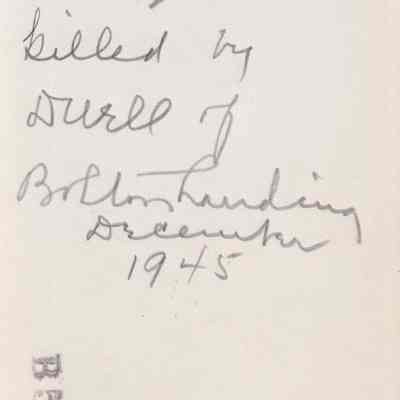 killed by
Duell of
Bolton Landing
December
1945